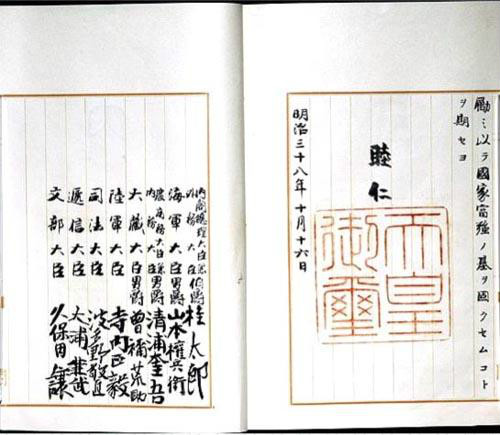 勵ミ以テ國家富強ノ基ヲ固クセムコト
ヲ期セヨ
睦仁
天皇御璽
明治三十八年十月十六日
内閣總理大臣兼
外務大臣伯爵桂太郎
海軍大臣男爵山本權兵衛
農商務大臣兼
内務大臣男爵清浦奎吾
大藏大臣男爵曾禰荒助
陸軍大臣寺内正毅
司法大臣波多野敬直
遞信大臣大浦兼武
文部大臣久保田讓